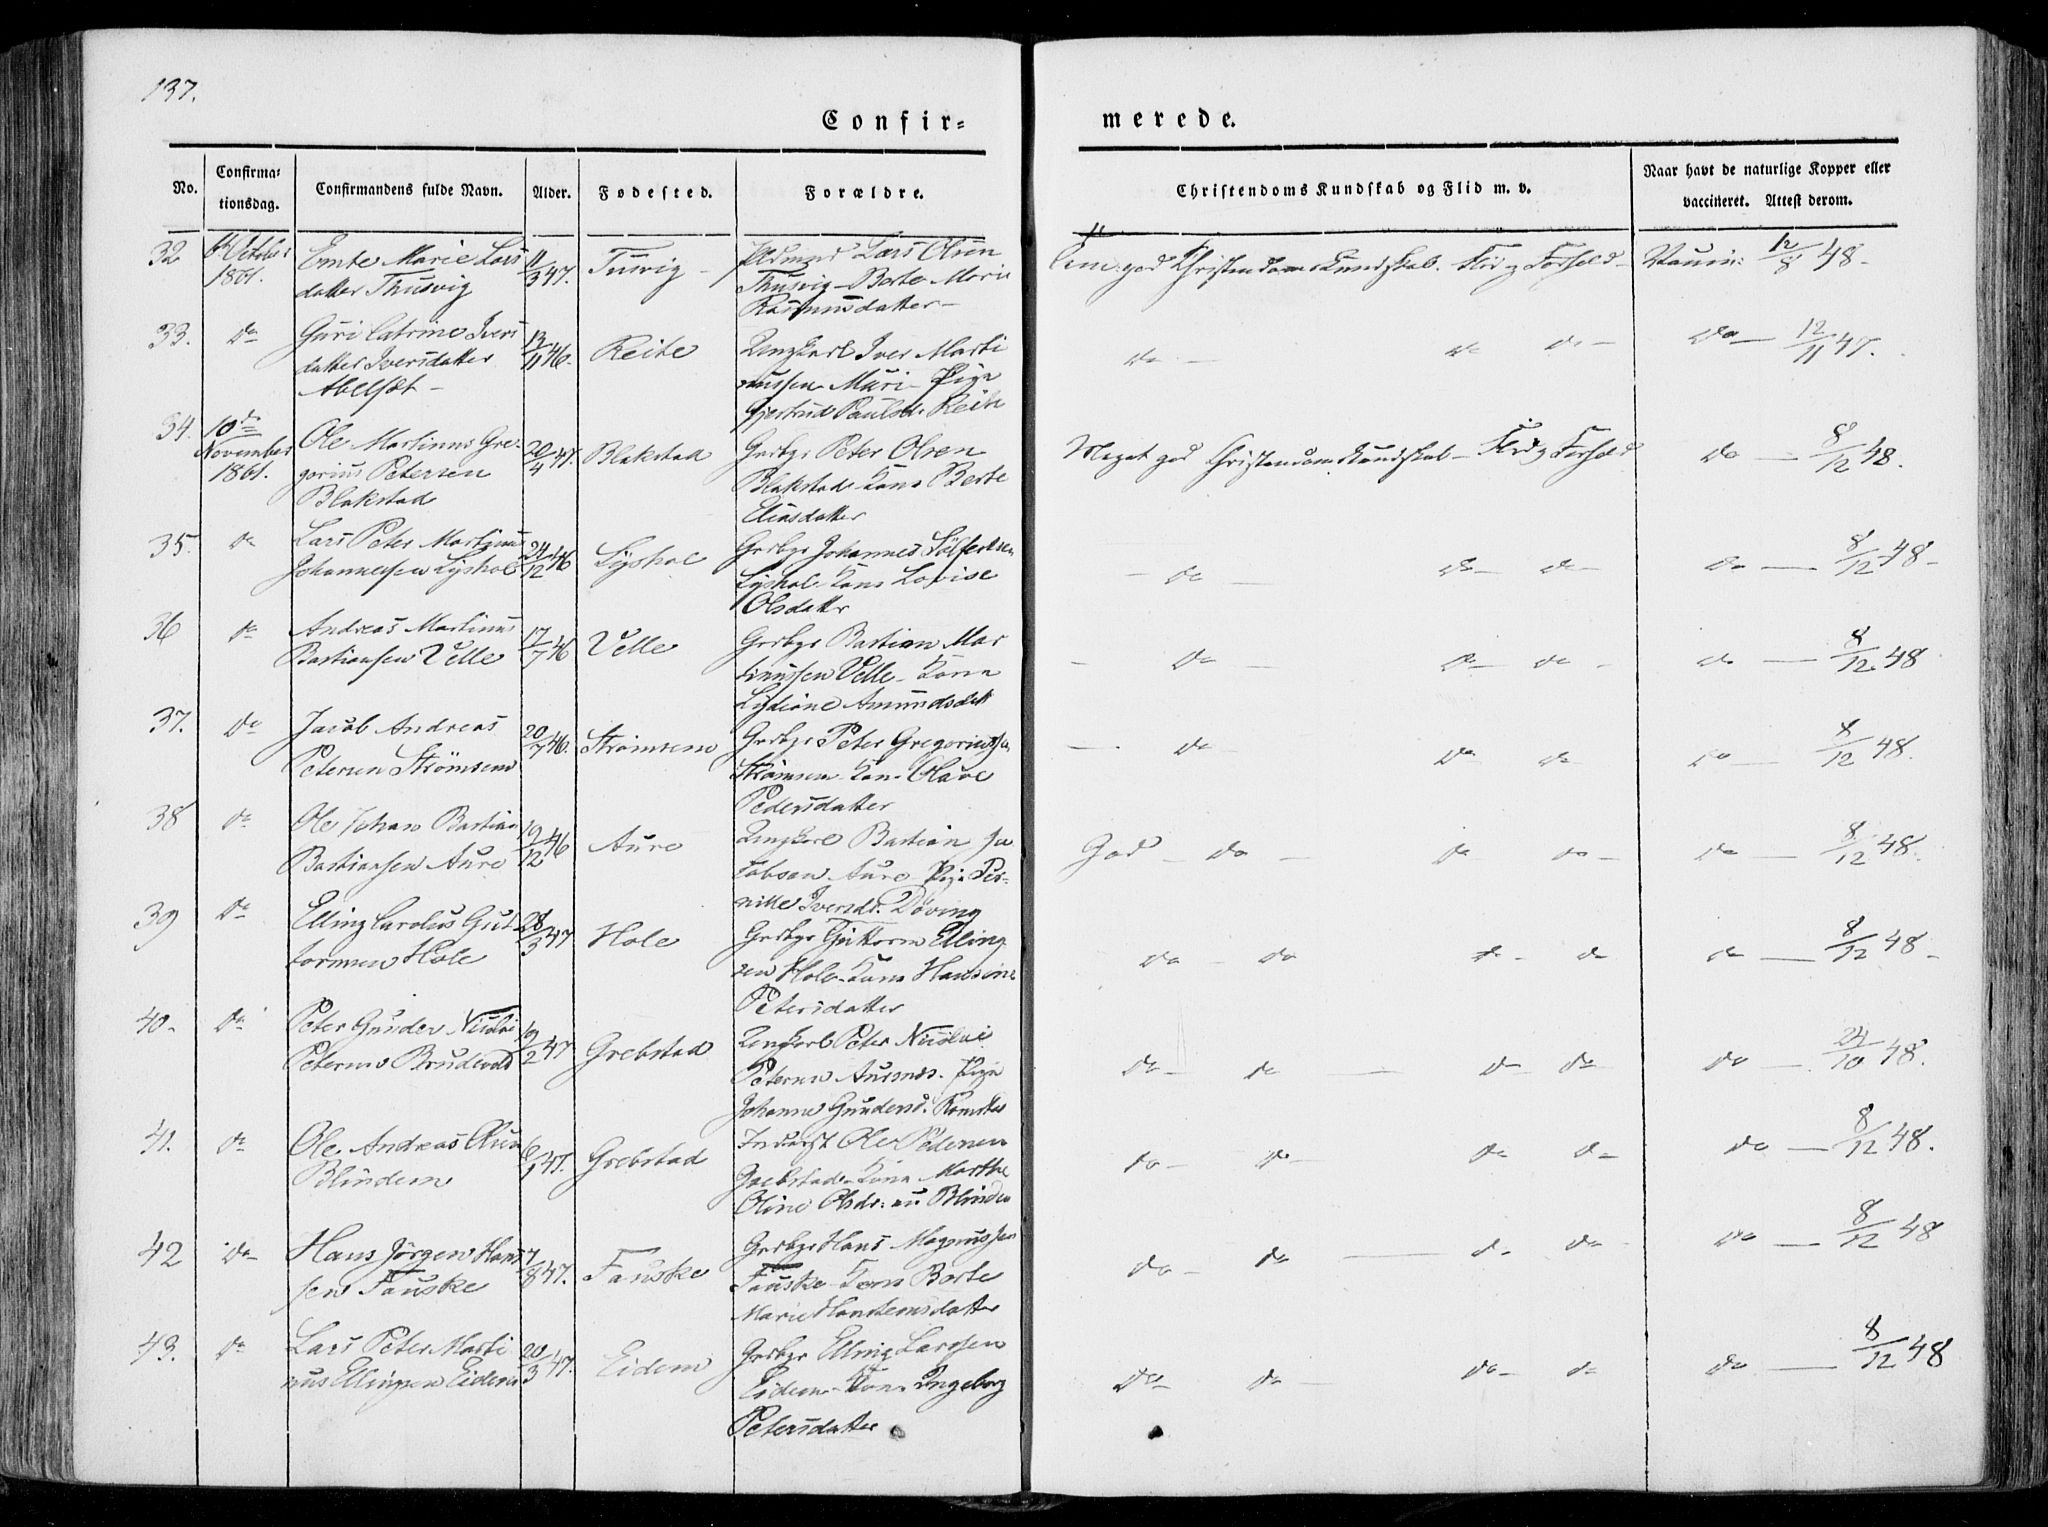 137.
Confir=
merede.
No.
Confirma-
tionsdag.
Confirmandens fulde Navn.
Alder.
Fødested.
Forældre.
Christendoms Kundskab og Flid m. v.
Naar havt de naturlige Kopper eller
vaccineret. Attest derom.
32
October
1861.
Marie Lars
datter Thusvig
11/3 47.
Tusvig
Lars Olsen
Thusvig - Berte Marie
Rasmusdatter -
god Christendoms Kundskab. Flid og Forhold -
Vaccin: 12/8 48 -
33.
do
Guri Catrine Ivers
datter Iversdatter
Abelset -
13/11 46.
Reite
Ungkarl Iver Marti
nussen Muri - Pige
Gjertrud Paulsd. Reite
do -
do
do -
do - 12/11 47.
34.
10de
November
1861.
Ole Martinus Gre-
gorius Petersen
Blakstad
20/4 47.
Blakstad
Grdbr. Peter Olsen
Blakstad - Kone Berte
Eliasdatter
Meget god Christendomskundskab - Flid og Forhold
do - 8/12 48.
35.
do
Lars Peter Martinus
Johannessen Lyshol
24/12 46
Lyshol
Johannes
Lyshol - Kone Lovise
Olsdatter
- do -
do -
do -
do - 8/12 48 -
36
do
Andreas Martinus
Bastiansen Velle
17/7 46
Velle
Bastian Mar
tinussen Velle - Kone
Amundsdatt
- do -
do -
do -
do - 8/12 48
37.
do
Jacob Andreas
Petersen Strømsem
20/7 46.
Strømsem
Peter Gregoriussen
Strømsem - Kone Olave
Pedersdatter
- do -
do
do -
do - 8/12 48.
38
do
Ole Johan Bastian
Bastiansen Aure
19/12 46
Aure
Ungkarl Bastian Ja
kobsen Aure - Pige Per-
nille Iversdr. Døving
God - do -
do
do -
do - 8/12 48.
39
do
Elling Carolus Gut
tormsen Hole
28/3 47
Hole
Guttorm Elling
sen Hole - Kone Hansine
Petersdatter
do - do
do -
do
do - 8/12 48 -
40 -
do
Peter Gunder Nicolai
Petersen Brudevold
19/2 47
Grebstad
Ungkarl Peter Nicolai
Petersen Aursnes. Pige
Johanne Gundersd.
do - do -
do -
do -
do - 24/10 48.
41.
do
Ole Andreas Olsen
Blindem
6/1 47.
Grebstad
Inderst Ole Pedersen
Grebstad - Kone Marthe
Oline Olsdr: Blindem
do - do -
do
do -
do - 8/12 48.
42
do
Hans Jörgen Hans
sen Fauske
7/8 47.
Fauske
Hans Magnussen
Fauske - Kone Berte
Marie
do - do -
do -
do -
do - 8/12 48
43.
do
Lars Peter Marti
nus Ellingsen Eidem
20/3 47.
Eidem
Elling Larssen
Eidem - Kone Ingeborg
Petersdatter
do - do -
do -
do -
do - 8/12 48